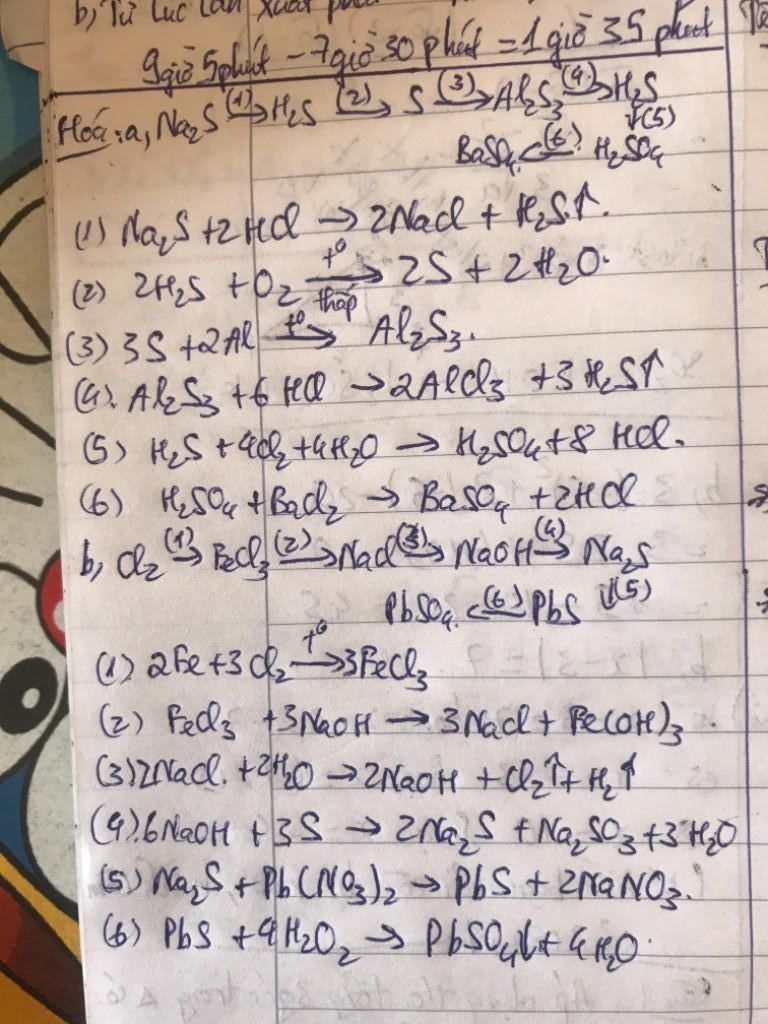 b, Từ lúc lần xuất phát
9giờ 5phút − 7giờ 30 phút = 1 giờ 35 phút
Hoá : a, Na₂S (1)→ H₂S (2)→ S (3)→ Al₂S₃ (4)→ H₂S
↓(5)
BaSO₄ ←(6) H₂SO₄
(1) Na₂S + 2HCl → 2NaCl + H₂S↑.
(2) 2H₂S + O₂ t⁰ thấp → 2S + 2H₂O.
(3) 3S + 2Al t⁰ → Al₂S₃.
(4). Al₂S₃ + 6 HCl → 2AlCl₃ + 3 H₂S↑
(5) H₂S + 4Cl₂ + 4H₂O → H₂SO₄ + 8 HCl.
(6) H₂SO₄ + BaCl₂ → BaSO₄ + 2HCl
b, Cl₂ (1)→ FeCl₃ (2)→ NaCl (3)→ NaOH (4)→ Na₂S
PbSO₄ ←(6) PbS ↓(5)
(1) 2Fe + 3Cl₂ t⁰ → 3FeCl₃
(2) FeCl₃ + 3NaOH → 3NaCl + Fe(OH)₃
(3) 2NaCl + 2H₂O → 2NaOH + Cl₂↑ + H₂↑
(4). 6NaOH + 3S → 2Na₂S + Na₂SO₃ + 3H₂O
(5) Na₂S + Pb(NO₃)₂ → PbS + 2NaNO₃.
(6) PbS + 4H₂O₂ → PbSO₄↓ + 4H₂O.